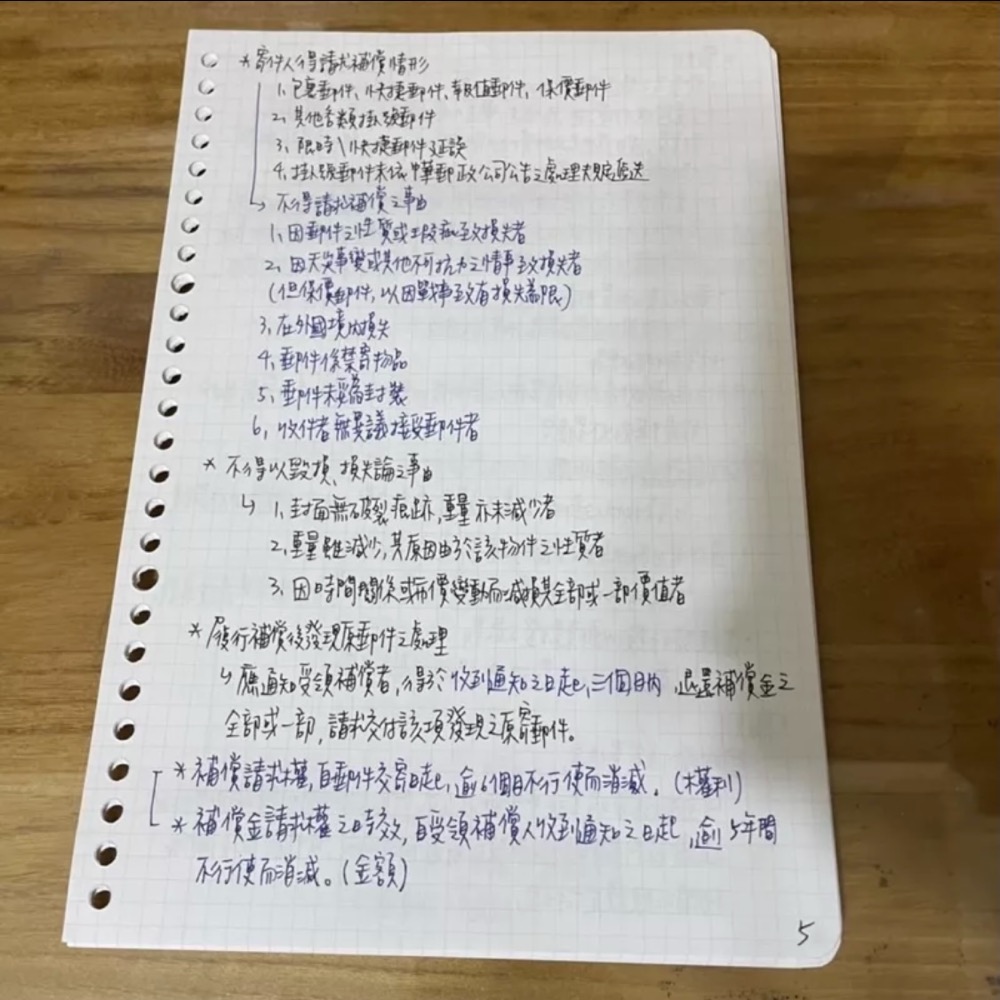 *寄件人得請求補償情形
1. 包裹郵件、快捷郵件、報值郵件、保價郵件
2. 其他各類掛號郵件
3. 限時\快捷郵件延誤
4. 掛號郵件未依中華郵政公司公告之處理規定遞送
↳ 不得請求補償之事由
1. 因郵件之性質或瑕疵致損失者
2. 因天災事變或其他不可抗力之情事致損失者
(但保價郵件, 以因戰事致有損失為限)
3. 在外國境內損失
4. 郵件係禁寄物品
5. 郵件未妥為封裝
6. 收件者無異議接受郵件者
* 不得以毀損、損失論之事由
↳ 1. 封面無破裂痕跡, 重量亦未減少者
2. 重量雖減少, 其原因由於該物件之性質者
3. 因時間關係或市價變動而減損其全部或一部價值者
* 發行補償後發現原郵件之處理
↳ 應通知受領補償者, 得於收到通知之日起, 三個月內, 退還補償金之
全部或一部, 請求交付該項發現之原寄郵件。
* 補償請求權, 自郵件交寄日起, 逾6個月不行使而消滅。(權利)
* 補償金請求權之時效, 自受領補償人收到通知之日起, 逾5年間
不行使而消滅。(金額)
5